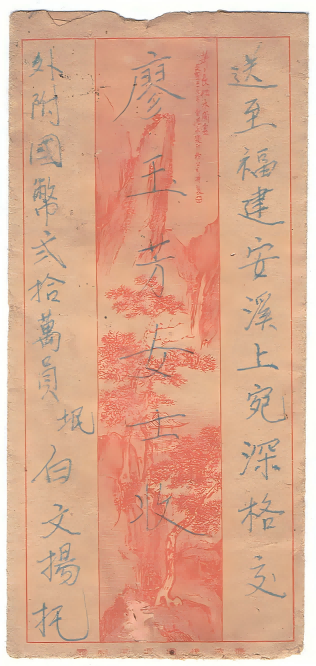 送至福建安溪上宛深格交
廖王芳女士收
外附國幣弍拾萬員
垊白文揚托